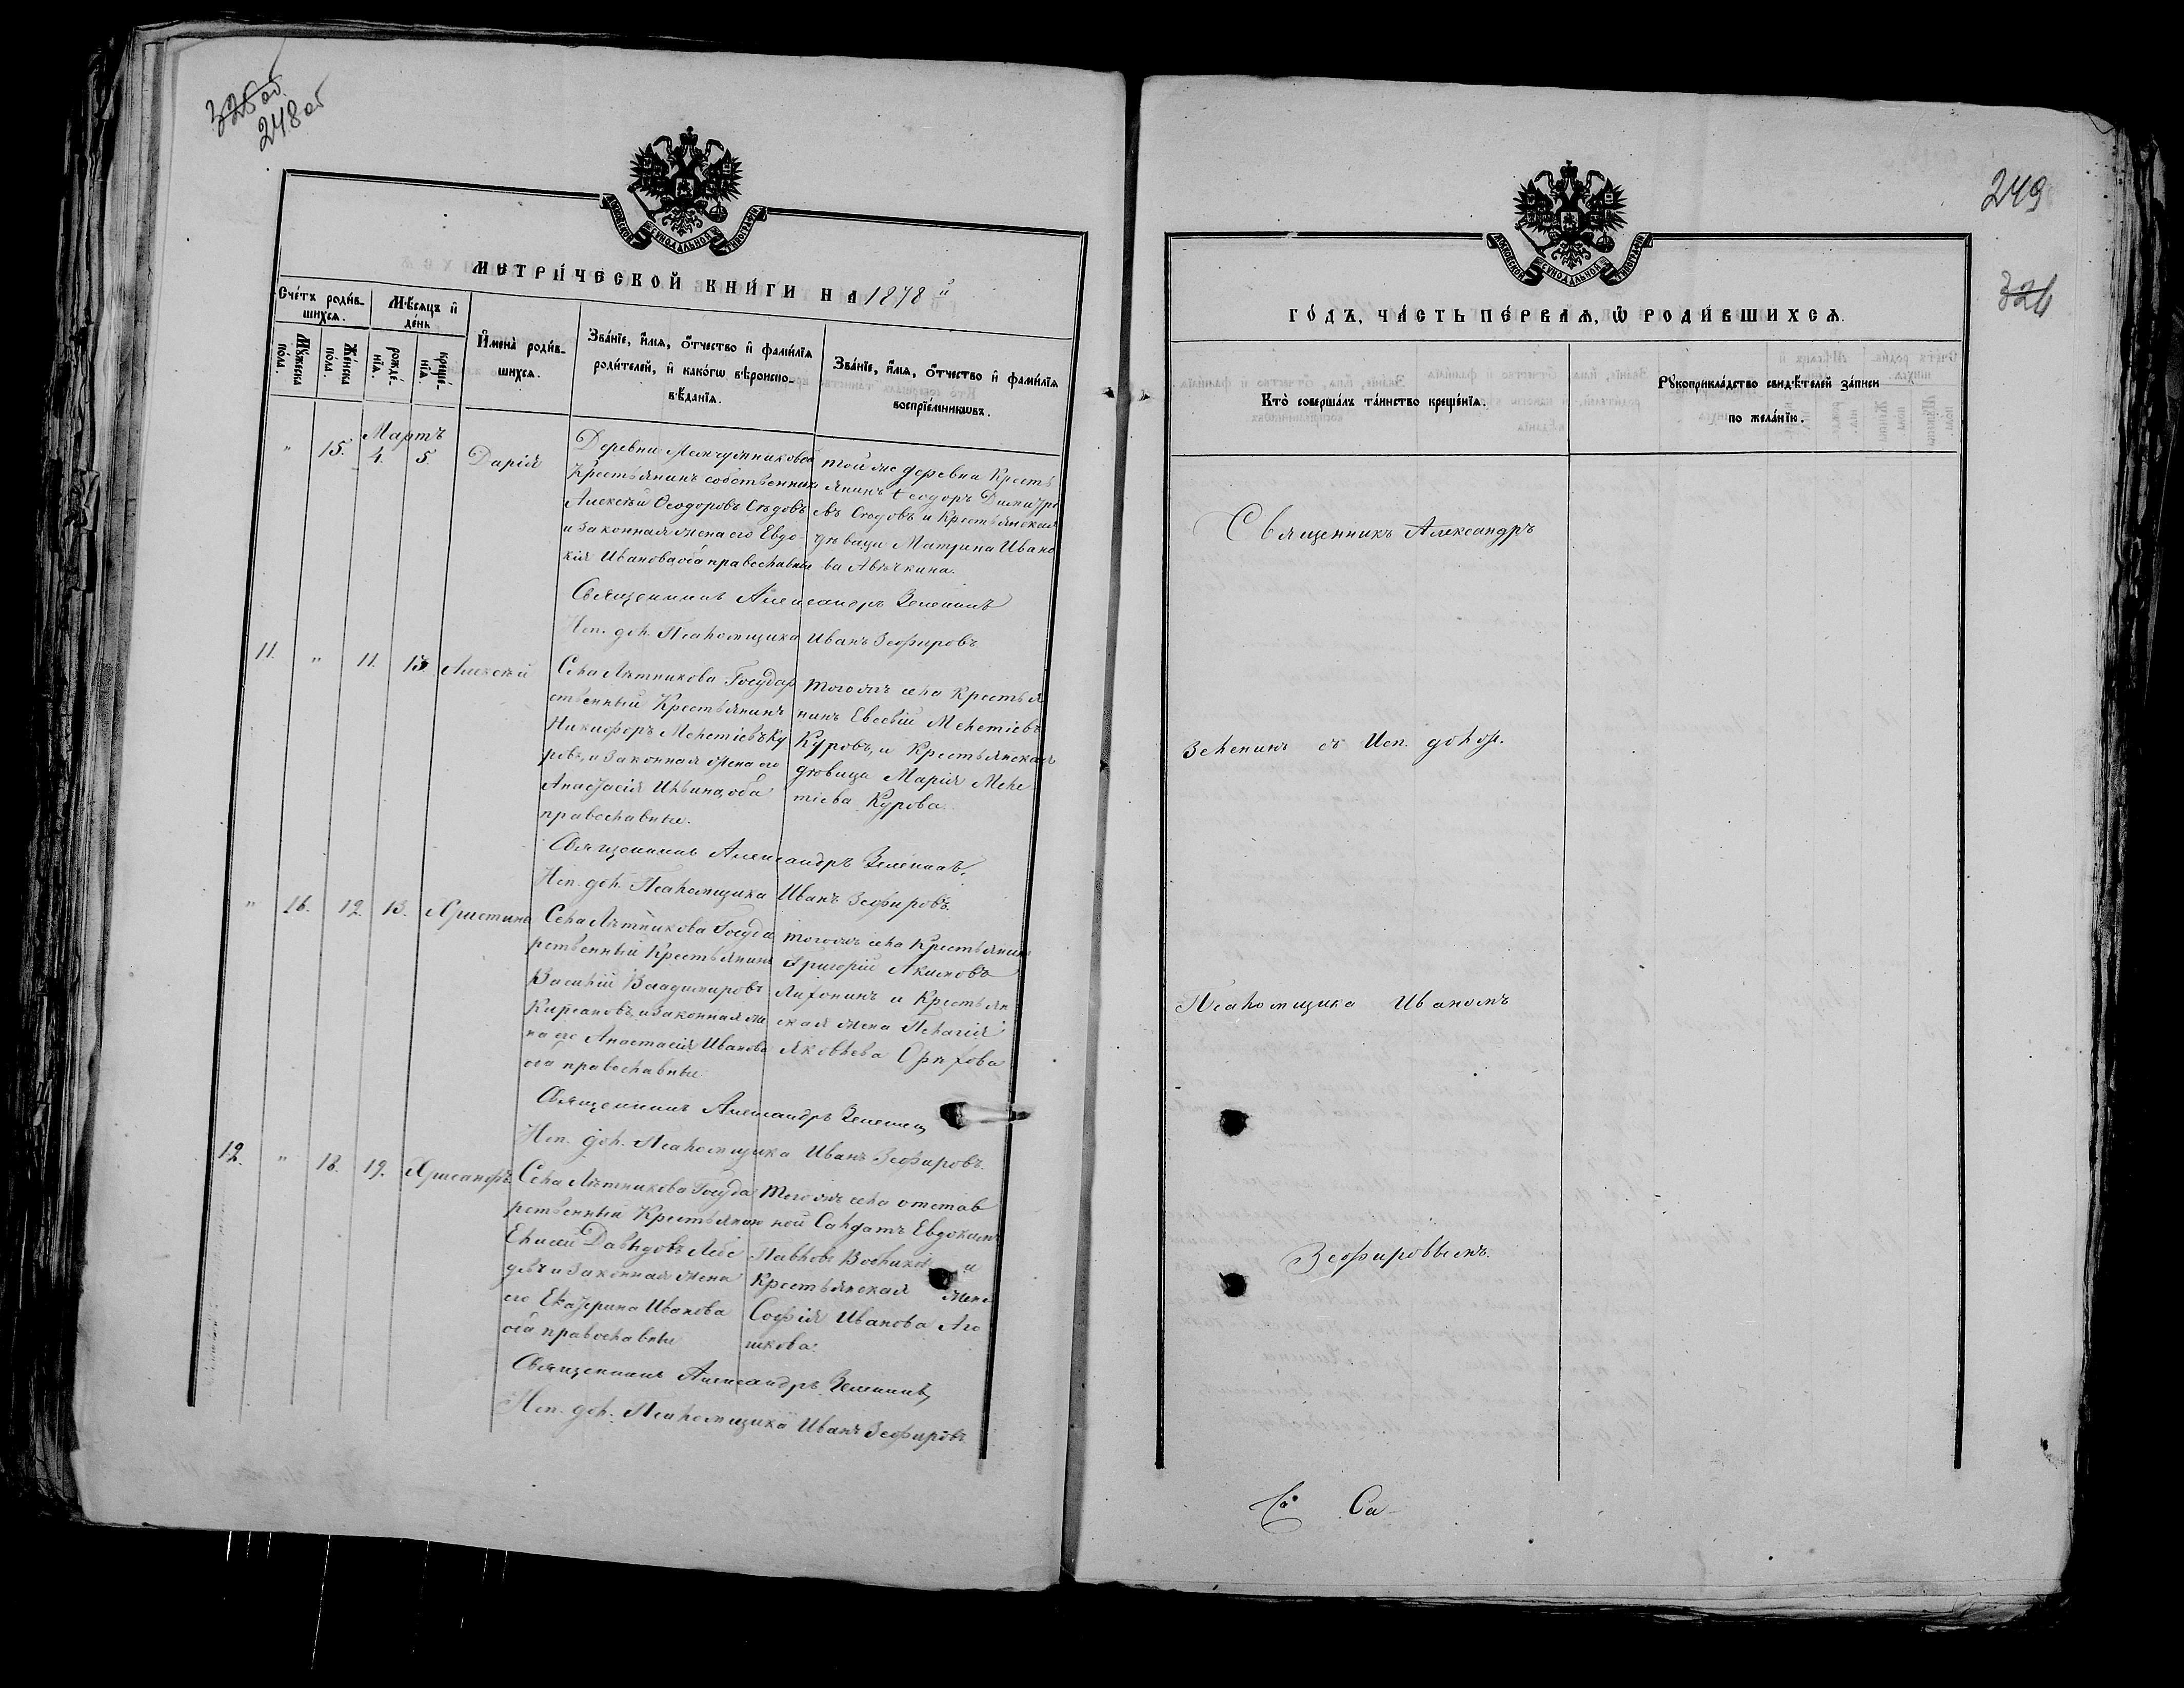 325 об.
248 об
МОСКОВСКОЙ СУНОДАЛЬНОЙ ТИПОГРАФІИ
МЕТРИ́ЧЕСКОЙ КНИ́ГИ НА 1878 й
Сче́тъ роди́в-
шихся.
Мѣ́сяцъ и҆
де́нь
И҆мена̀ роди́в-
шихся.
Зва́нїе, и҆́мя, ѻ҆́тчество и҆ фами́лїя
роди́телей, и҆ како́гѡ вѣроиспо-
вѣ́данїя.
Зва́нїе, и҆́мя, ѻ҆́тчество и҆ фами́лїя
воспрїе́мникѡвъ.
Мꙋ́жеска
по́ла.
Же́нска
пола.
рожде́-
нїя.
креще́-
нїя.
Мартъ
" 15. 4. 5. Дарія
Деревни
Крестьянинъ собственникъ
Алексѣй Ѳеодоровъ Сѣдовъ
и законная жена его Евдо-
кія Иванова, оба православные
той же деревни Кресть
янинъ Ѳеодоръ Димитрі
евъ Сѣдовъ и Крестьянская
дѣвица Матрена Ивано
ва
Священникъ Александръ Зеленинъ
Исп. дол. Псаломщика Иванъ Зефировъ.
11. " 11. 13 Алексѣй
Села Лѣтникова Государ
ственный Крестьянинъ
Никифоръ Мелетіевъ Ку
ровъ, и законная жена его
Анастасія Ильина, оба
православные.
того же села Крестья
нинъ Евсевій Мелетіевъ
Куровъ, и Крестьянская
дѣвица Марія Меле
тіева Курова.
Священникъ Александръ Зеленинъ.
Исп. дол. Псаломщика Иванъ Зефировъ.
" 16. 12. 13. Христина
Села Лѣтникова Госуда
рственный Крестьянинъ
Василій Владимировъ
Кирсановъ, и законная же
на его Анастасія Иванова
оба православные
того же села Крестьянинъ
Григорій Акимовъ
и Крестьян
ская жена Пелагія
Яковлева
Священникъ Александръ Зеленин
Исп. дол. Псаломщика Иванъ Зефировъ.
12. " 18. 19. Хрисанфъ.
Села Лѣтникова Госуда
рственный Крестьянинъ
Елисей Давыдовъ Лебе
девъ и законная жена
его Екатерина Иванова
оба православные
того же села отстав
ной Салдатъ Евдокимъ
Павловъ и
Крестьянская жена
Софія Иванова Аго
шкова.
Священникъ Александръ Зеленинъ,
Исп. дол. Псаломщика Иванъ Зефировъ
249
326
МОСКОВСКОЙ СУНОДАЛЬНОЙ ТИПОГРАФІИ
ГО́ДЪ, ЧА́СТЬ ПЕ́РВАЯ, Ѡ҆ РОДИ́ВШИХСЯ.
Кто̀ соверша́лъ та́инство креще́нїя.
Рꙋкоприкла́дство свидѣ́телей за́писи
по жела́нїю.
Священникъ Александръ
Зеленинъ съ Исп. дол.
Псаломщика Иваномъ
Зефировымъ.
Са-